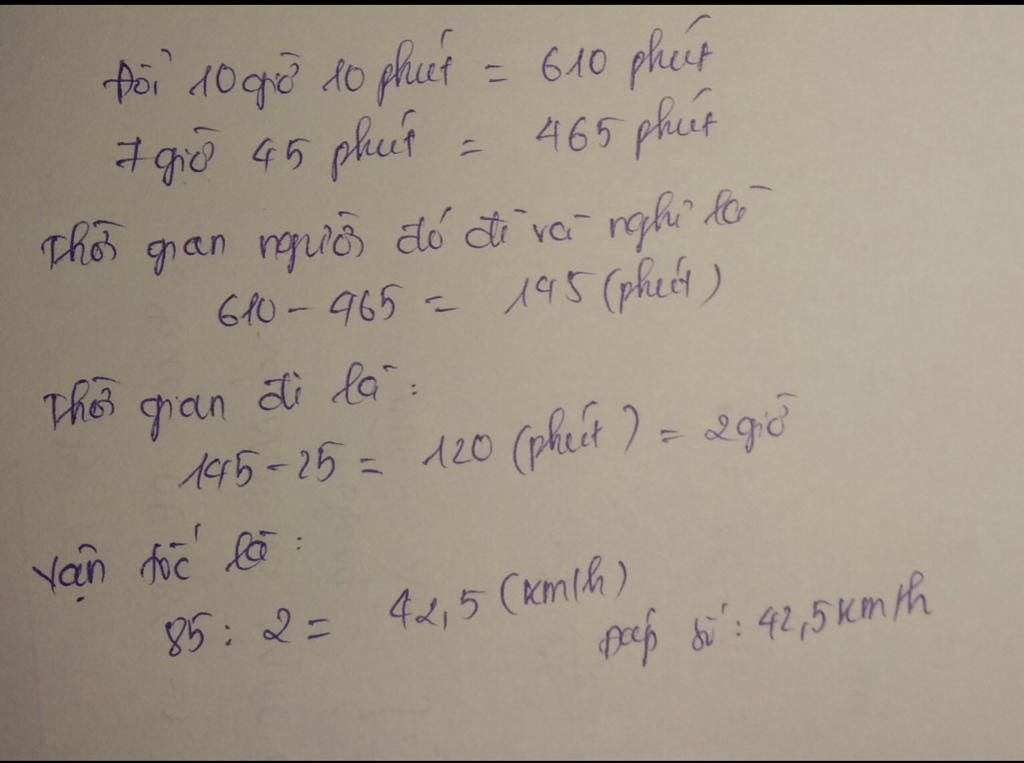 Đổi 10 giờ 10 phút = 610 phút
7 giờ 45 phút = 465 phút
Thời gian người đó đi và nghỉ là
610 - 465 = 145 (phút)
Thời gian đi là:
145 - 25 = 120 (phút) = 2 giờ
Vận tốc là:
85 : 2 = 42,5 (km/h)
Đáp số : 42,5 km/h